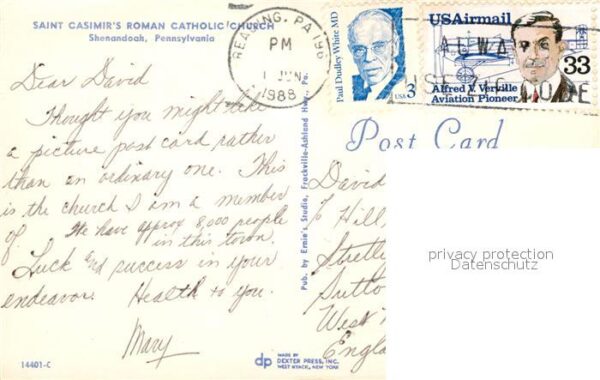 SAINT CASIMIR'S ROMAN CATHOLIC CHURCH
Shenandoah, Pennsylvania
READING, PA 196
PM
1 JUN
1988
Paul Dudley White MD
USA 3
USAirmail
33
Alfred V. Verville
Aviation Pioneer
ALWAYS
USE ZIP CODE
Dear David
Thought you might like
a picture post card rather
than an ordinary one. This
is the church I am a member
of. We have approx 8,000 people
in this town.
Luck and success in your
endeavor. Health to you.
Mary
14401-C
Pub. by Ernie's Studio, Frackville-Ashland Hwy., Pa.
dp
MADE BY
DEXTER PRESS, INC.
WEST NYACK, NEW YORK
Post Card
David
Hill
Sutto
West
Engla
privacy protection
Datenschutz